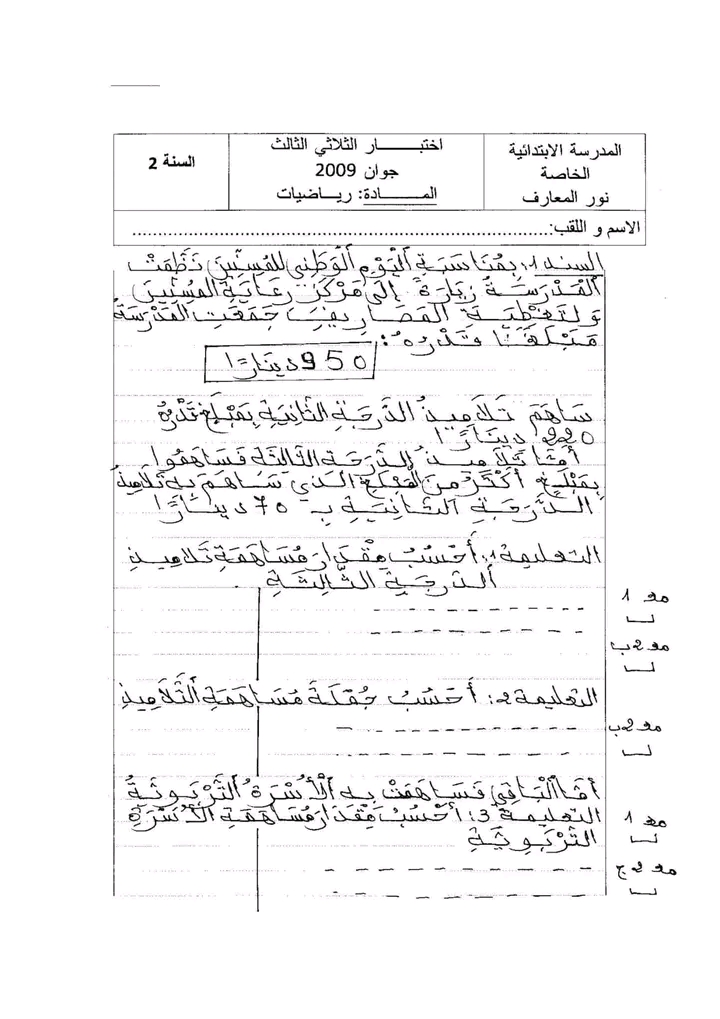 المدرسة الابتدائية
الخاصة
نور المعارف
اختبـــــــار الثلاثي الثالث
جوان 2009
المـــــــادة: ريـــاضيات
السنة 2
الاسم و اللقب:......................................................................
السند 1: بِمُنَاسَبَةِ اَلْيَوْمِ اَلْوَطَنِي لِلْمُسِنِّينَ نَظَّمَتْ
اَلْمَدْرَسَةُ زِيَارَةً إِلَى مَرْكَزِ رِعَايَةِ الْمُسِنِّينَ
وَ لِتَغْطِيَةِ الْمَصَارِيفِ جَمَعَتِ الْمَدْرَسَةُ
مَبْلَغًا قَدْرُهُ:
950 دِينَارًا
سَاهَمَ تَلَامِيذُ الدَّرَجَةِ الثَّانِيَةِ بِمَبْلَغٍ قَدْرُهُ
220 دِينَارًا
أَمَّا تَلَامِيذُ الدَّرَجَةِ الثَّالِثَةِ فَسَاهَمُوا
بِمَبْلَغٍ أَكْثَرَ مِنَ الْمَبْلَغِ الَّذِي سَاهَمَ بِهِ تَلَامِيذُ
الدَّرَجَةِ الثَّانِيَةِ بِـ 70 دِينَارًا
التعليمة 1: أَحْسُبُ مِقْدَارَ مُسَاهَمَةِ تَلَامِيذِ
اَلدَّرَجَةِ الثَّالِثَةِ.
مع 1
مع 2 ب
التعليمة 2: أَحْسُبُ جُمْلَةَ مُسَاهَمَةِ اَلتَّلَامِيذِ
مع 2 ب
أَمَّا اَلْبَاقِي فَسَاهَمَتْ بِهِ اَلْأُسْرَةُ اَلتَّرْبَوِيَّةُ
التعليمة 3: أَحْسُبُ مِقْدَارَ مُسَاهَمَةِ الْأُسْرَةِ
التَّرْبَوِيَّةِ
مع 1
مع 2 ج